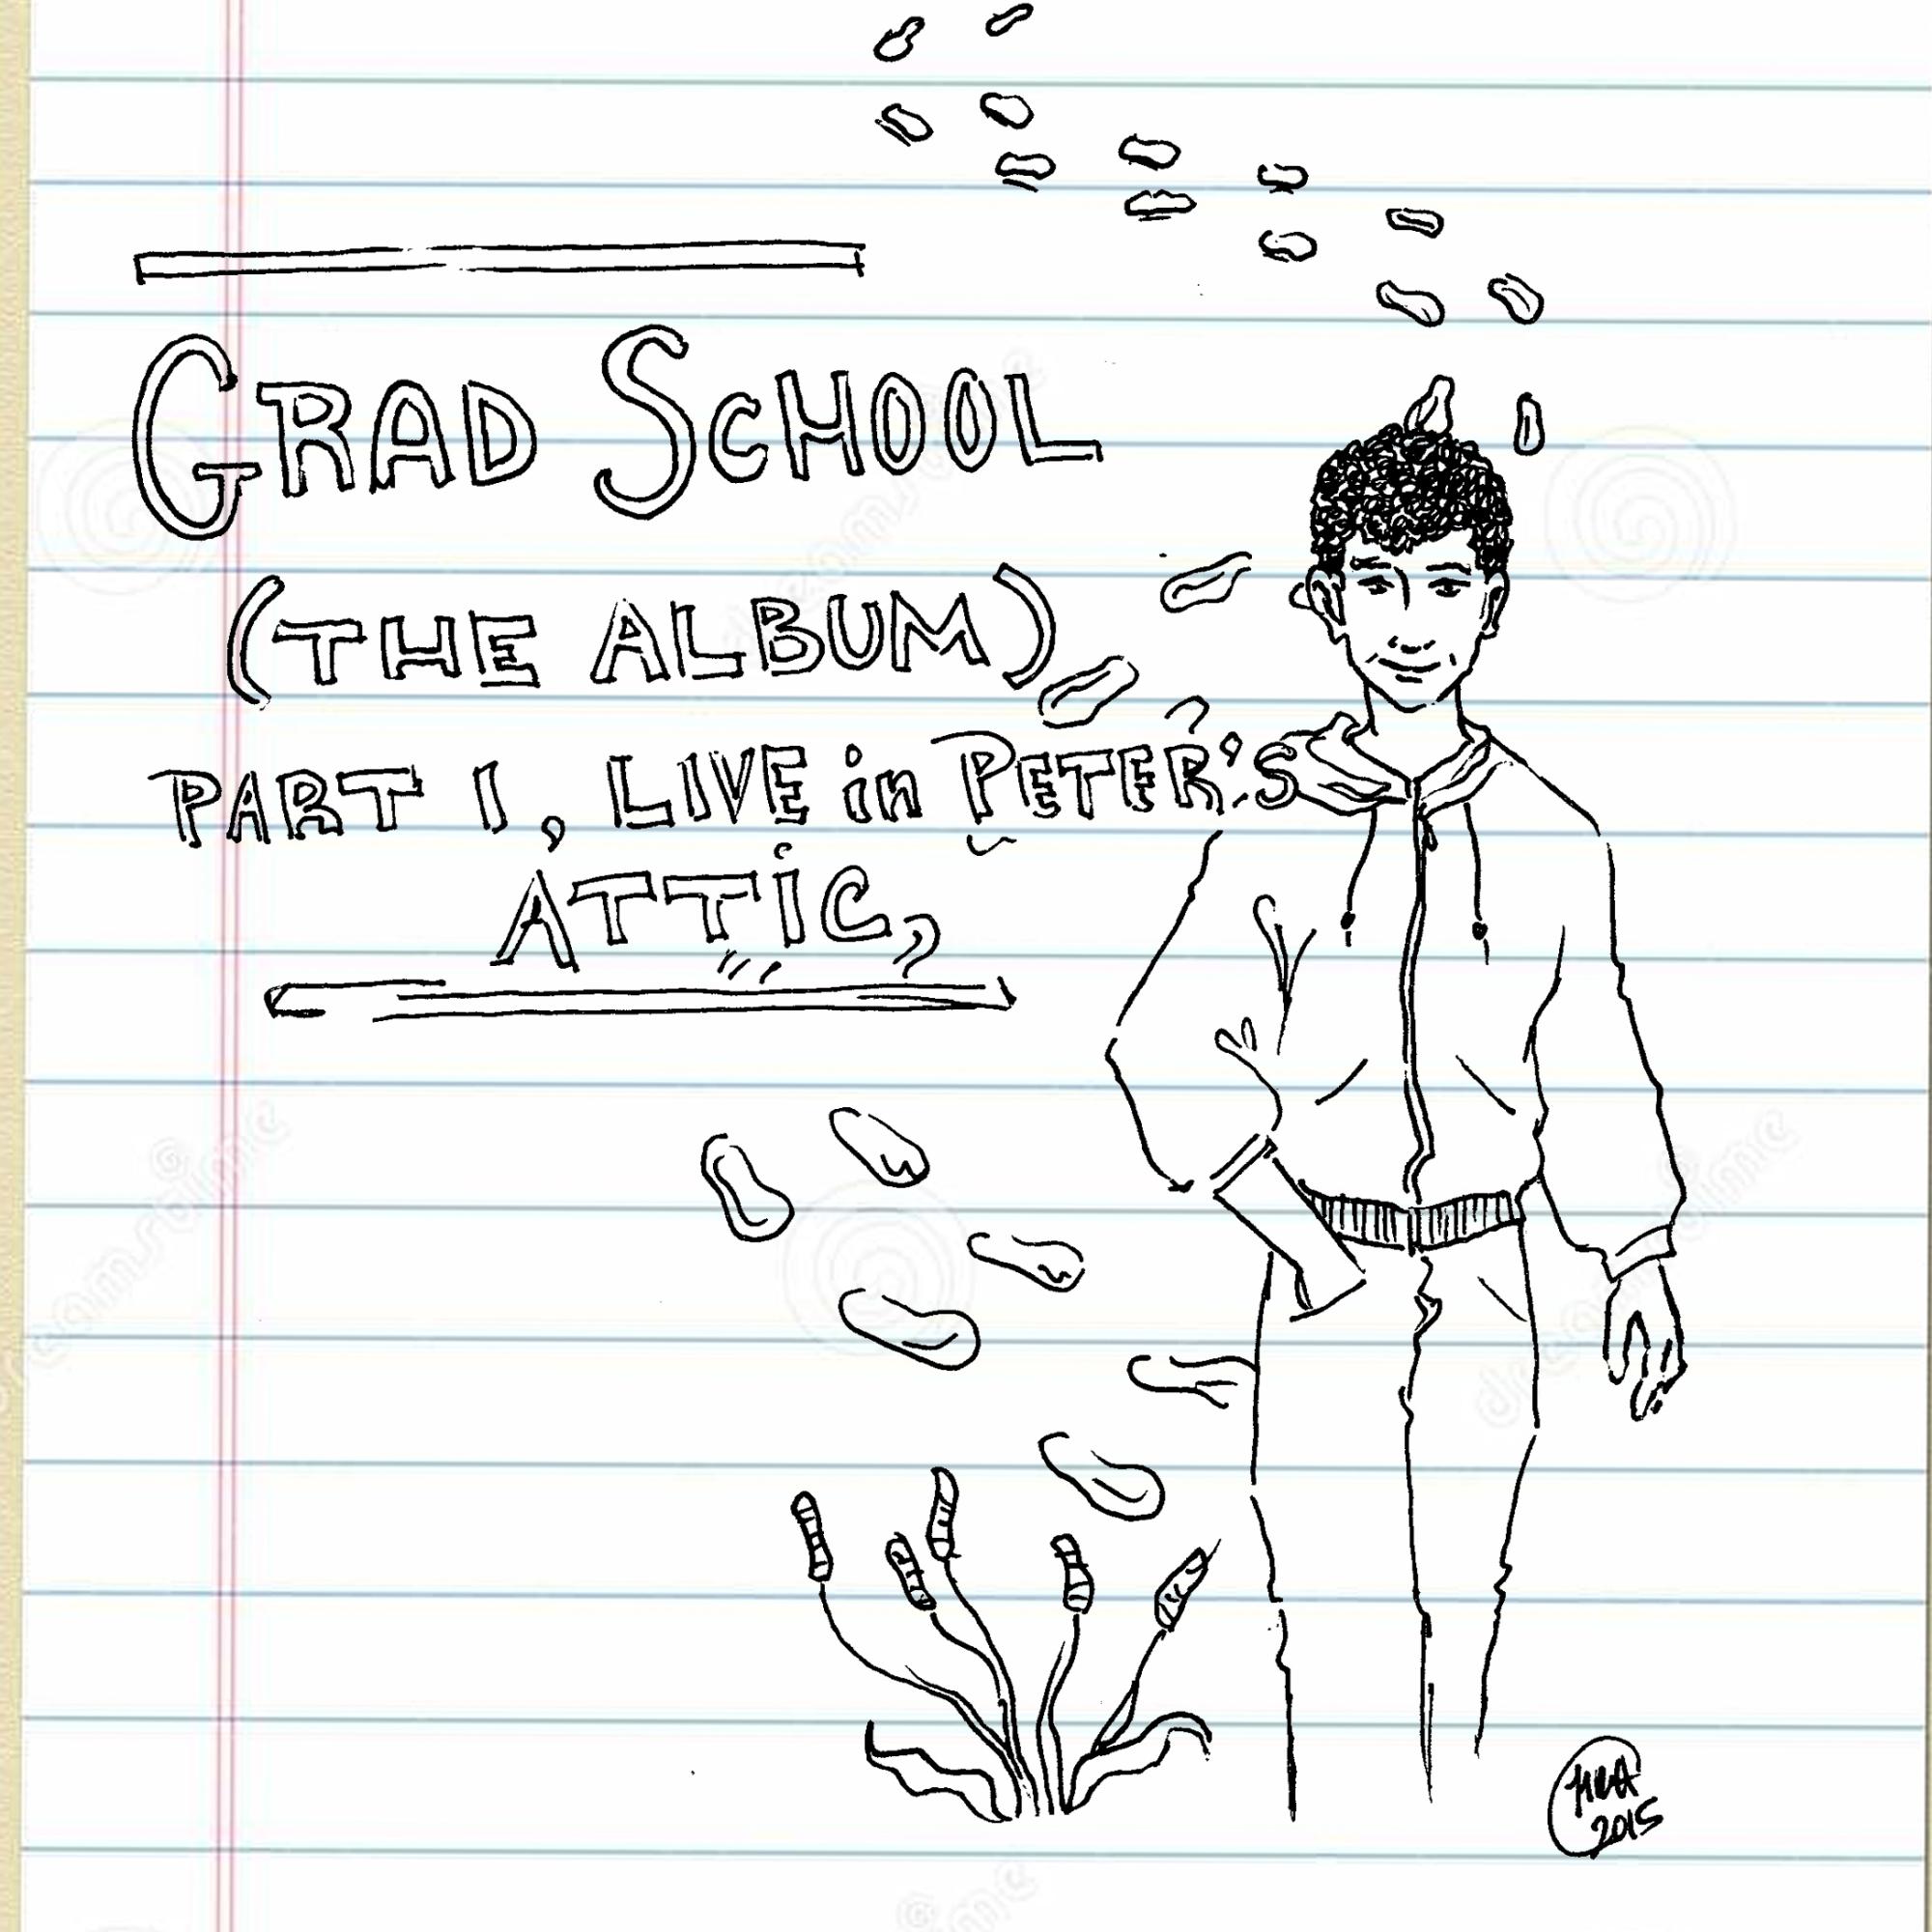 GRAD SCHOOL
(THE ALBUM)
PART 1, LIVE in PETER'S
ATTIC,
2015
dreamstime
dreamstime
dreamstime